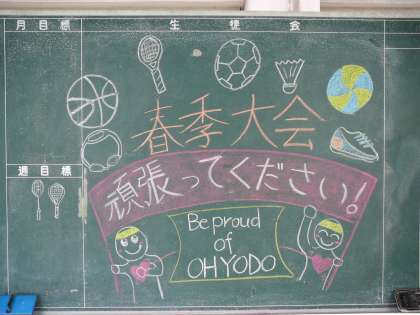 月目標
生標会
春季大会
頑張ってください!
週目標
Be proud
of
OHYODO